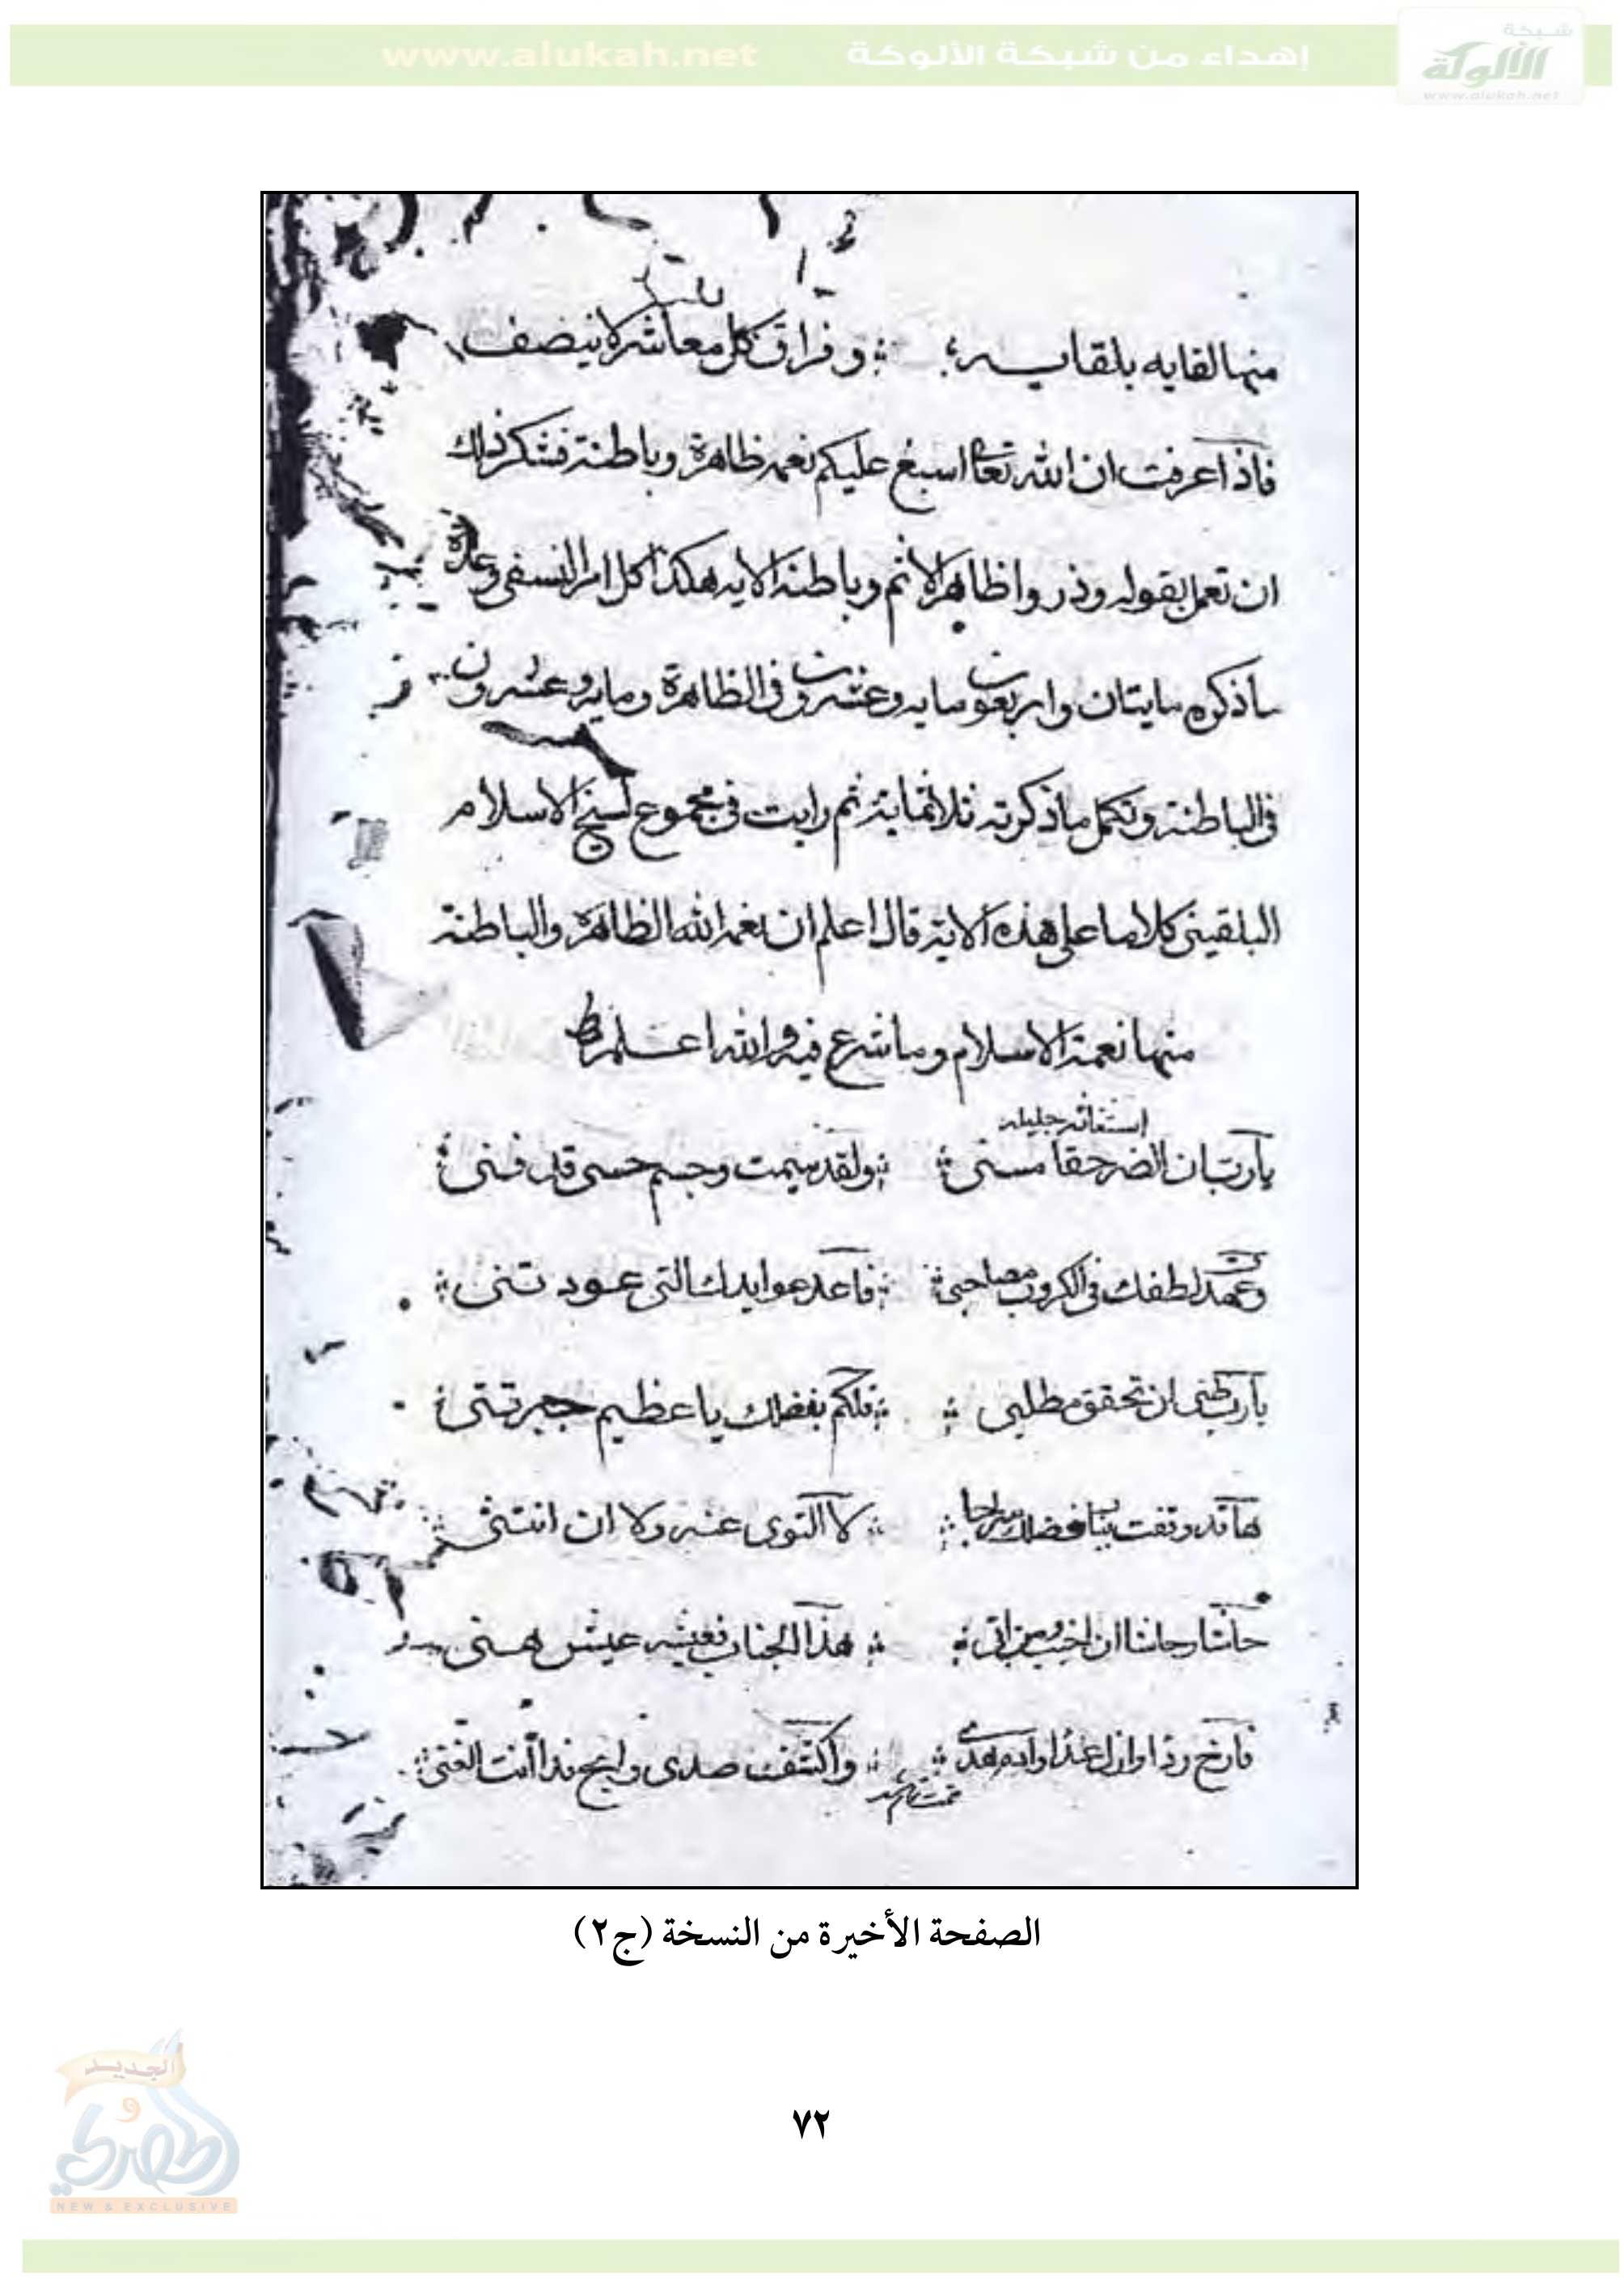 إهداء من شبكة الألوكة www.alukah.net
شبكة
الألوكة
www.alukah.net
منها لقايه بلقايه ؛ وفراق كل معاشر لا ينصف
فاذا عرفت ان الله تعالى اسبغ عليكم نعمه ظاهرة وباطنة فشكر ذلك
ان تعمل بقوله وذروا ظاهر الاثم وباطنه الايه هكذا كلام النسفى وعدة
ماذكره مايتان واربعون مايه وعشرون فى الظاهرة ومايه وعشرون
فى الباطنة وتكمل ماذكرته ثلاثماية ثم رايت فى مجموع لشيخ الاسلام
البلقينى كلاما على هذه الاية قال اعلم ان نعم الله الظاهرة والباطنة
منها نعمة الاسلام وما شرع فيه والله اعلم
استغاثه جليله
يارب ان الضر حقا مسنى ولقد سيمت وجسم حسى قد فنى
وعهد لطفك فى الكروب مصاحبى فاعد عوايدك التى عودتنى
يارب ظنى ان تحقق مطلبى فلكم بفضلك يا عظيم جبرتنى
ها قد وقفت بباب فضلك لا التوى عنه ولا ان انثنى
حاشا وحاشا ان اخيب هذا الجناب فعيشه عيش هنى
واكشف صدى انت الغنى
الصفحة الأخيرة من النسخة (ج٢)
الجديد
و
الحصري
NEW & EXCLUSIVE
٧٢